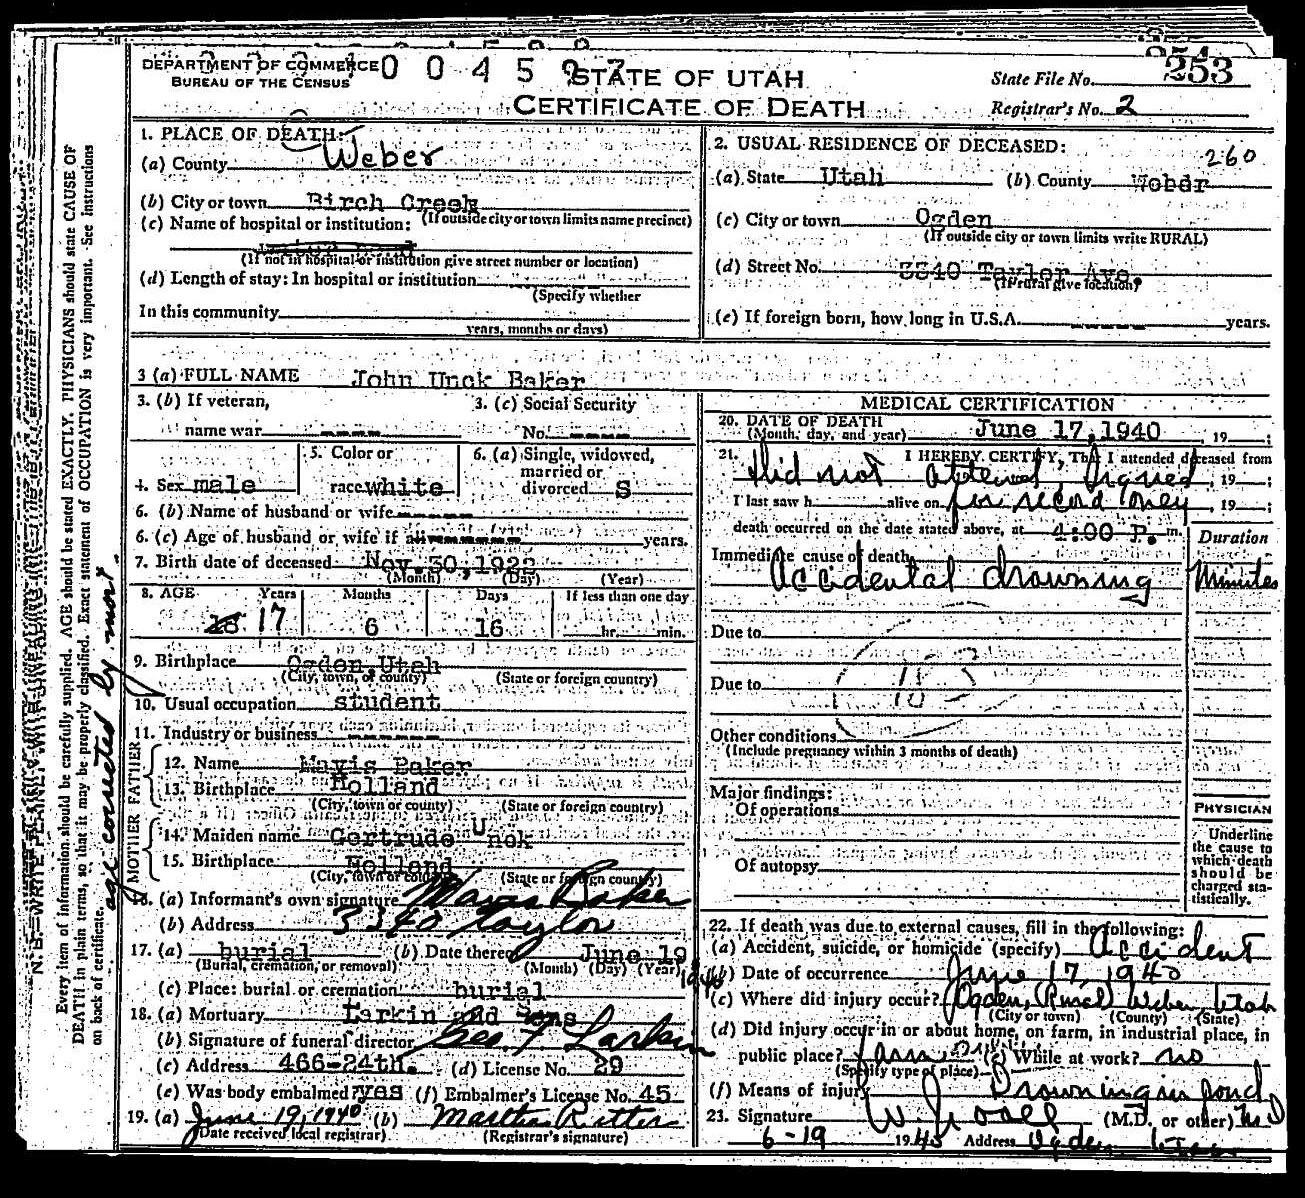 DEPARTMENT OF COMMERCE
BUREAU OF THE CENSUS
STATE OF UTAH
CERTIFICATE OF DEATH
State File No. 253
Registrar's No. 2
1. PLACE OF DEATH:
(a) County Weber
(b) City or town Birch Creek
(If outside city or town limits name precinct)
(c) Name of hospital or institution:
(If not in hospital or institution give street number or location)
(d) Length of stay: In hospital or institution
(Specify whether
In this community
years, months or days)
2. USUAL RESIDENCE OF DECEASED:
260
(a) State Utah (b) County Weber
(c) City or town Ogden
(If outside city or town limits write RURAL)
(d) Street No. 3340 Taylor Ave.
(If rural give location)
(e) If foreign born, how long in U.S.A. ---- years.
3 (a) FULL NAME John Unck Baker
3. (b) If veteran,
name war ----
3. (c) Social Security
No. ----
4. Sex male
5. Color or
race white
6. (a) Single, widowed,
married or
divorced S
6. (b) Name of husband or wife
6. (c) Age of husband or wife if years.
7. Birth date of deceased Nov. 30, 1922
(Month) (Day) (Year)
8. AGE Years Months Days If less than one day
18 17 6 16 hr. min.
9. Birthplace Ogden, Utah
(City, town, or county) (State or foreign country)
10. Usual occupation student
11. Industry or business ----
FATHER
12. Name Mavis Baker
13. Birthplace Holland
(City, town or county) (State or foreign country)
MOTHER
14. Maiden name Gertrude Unck
15. Birthplace Holland
(City, town or county) (State or foreign country)
16. (a) Informant's own signature Mavis Baker
(b) Address 3340 Taylor
17. (a) burial (b) Date thereof June 19 1940
(Burial, cremation, or removal) (Month) (Day) (Year)
(c) Place: burial or cremation burial
18. (a) Mortuary Larkin and Sons
(b) Signature of funeral director Geo. F Larkin
(c) Address 466-24th. (d) License No. 29
(e) Was body embalmed? yes (f) Embalmer's License No. 45
19. (a) June 19, 1940 (b) Martha Ritter
(Date received local registrar) (Registrar's signature)
MEDICAL CERTIFICATION
20. DATE OF DEATH
(Month, day, and year) June 17, 1940, 19 ;
21. I HEREBY CERTIFY, That I attended deceased from
Did not attend, Signed, 19 ;
I last saw h alive on for record only, 19 ;
death occurred on the date stated above, at 4:00 P. m.
Duration
Immediate cause of death
Accidental drowning Minutes
Due to
183
Due to
Other conditions
(Include pregnancy within 3 months of death)
Major findings:
Of operations
Of autopsy
PHYSICIAN
Underline
the cause to
which death
should be
charged sta-
tistically.
22. If death was due to external causes, fill in the following:
(a) Accident, suicide, or homicide (specify) Accident
(b) Date of occurrence June 17, 1940
(c) Where did injury occur? Ogden, (Rural) Weber, Utah
(City or town) (County) (State)
(d) Did injury occur in or about home, on farm, in industrial place, in
public place? farm (e) While at work? no
(Specify type of place)
(f) Means of injury Drowning in pond
23. Signature (M.D. or other) MD
6-19 1940 Address Ogden Utah
Every item of information should be carefully supplied. AGE should be stated EXACTLY. PHYSICIANS should state CAUSE OF
DEATH in plain terms, so that it may be properly classified. Exact statement of OCCUPATION is very important. See Instructions
on back of certificate.
age corrected by mort.